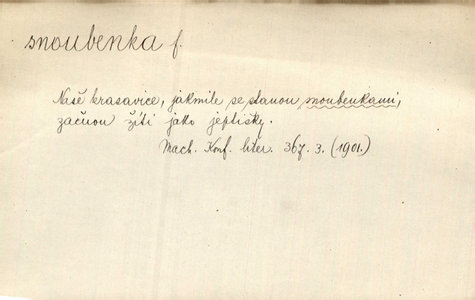 snoubenka f.
Naše krasavice, jakmile se stanou snoubenkami,
začnou žíti jako jeptisky.
Mach. Konf. liter. 367. 3. (1901.)